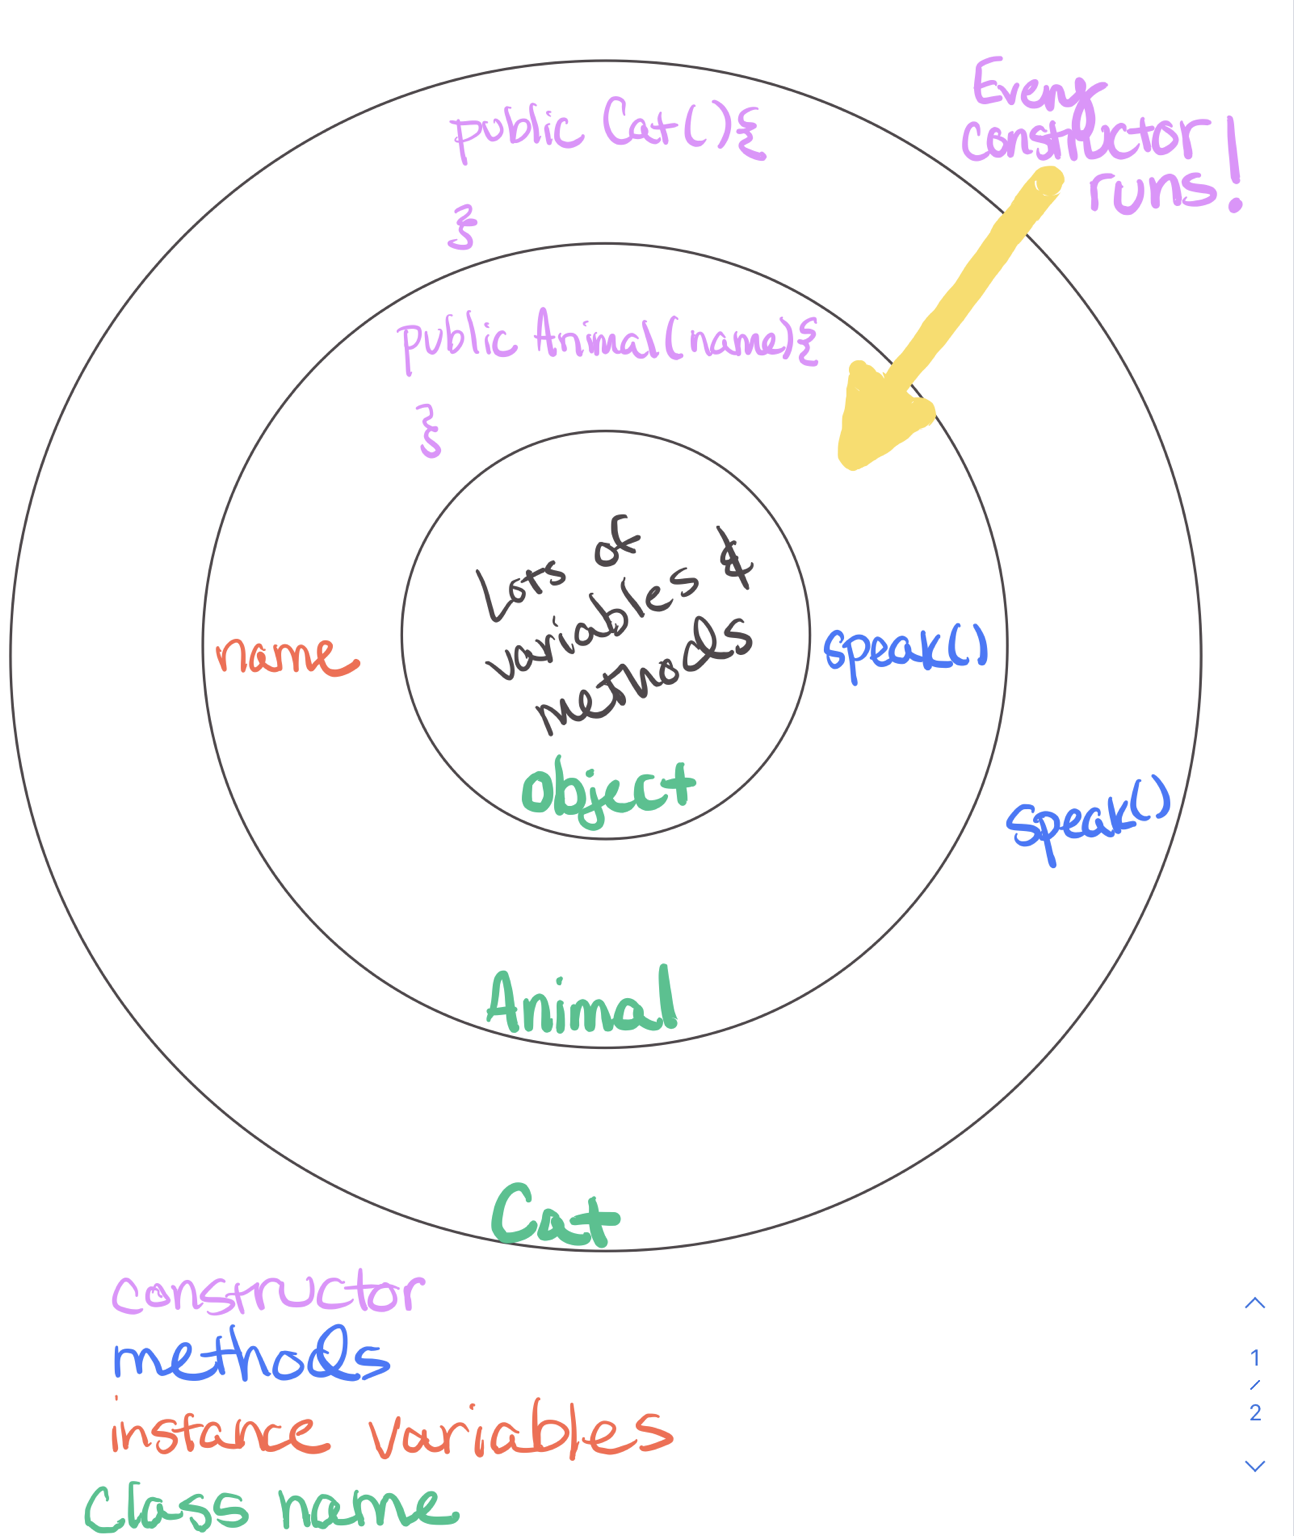 Every
constructor
runs!
public Cat(){
}
public Animal(name){
}
Lots of
variables &
methods
object
name
speak()
speak()
Animal
Cat
constructor
methods
instance variables
class name
1
/
2